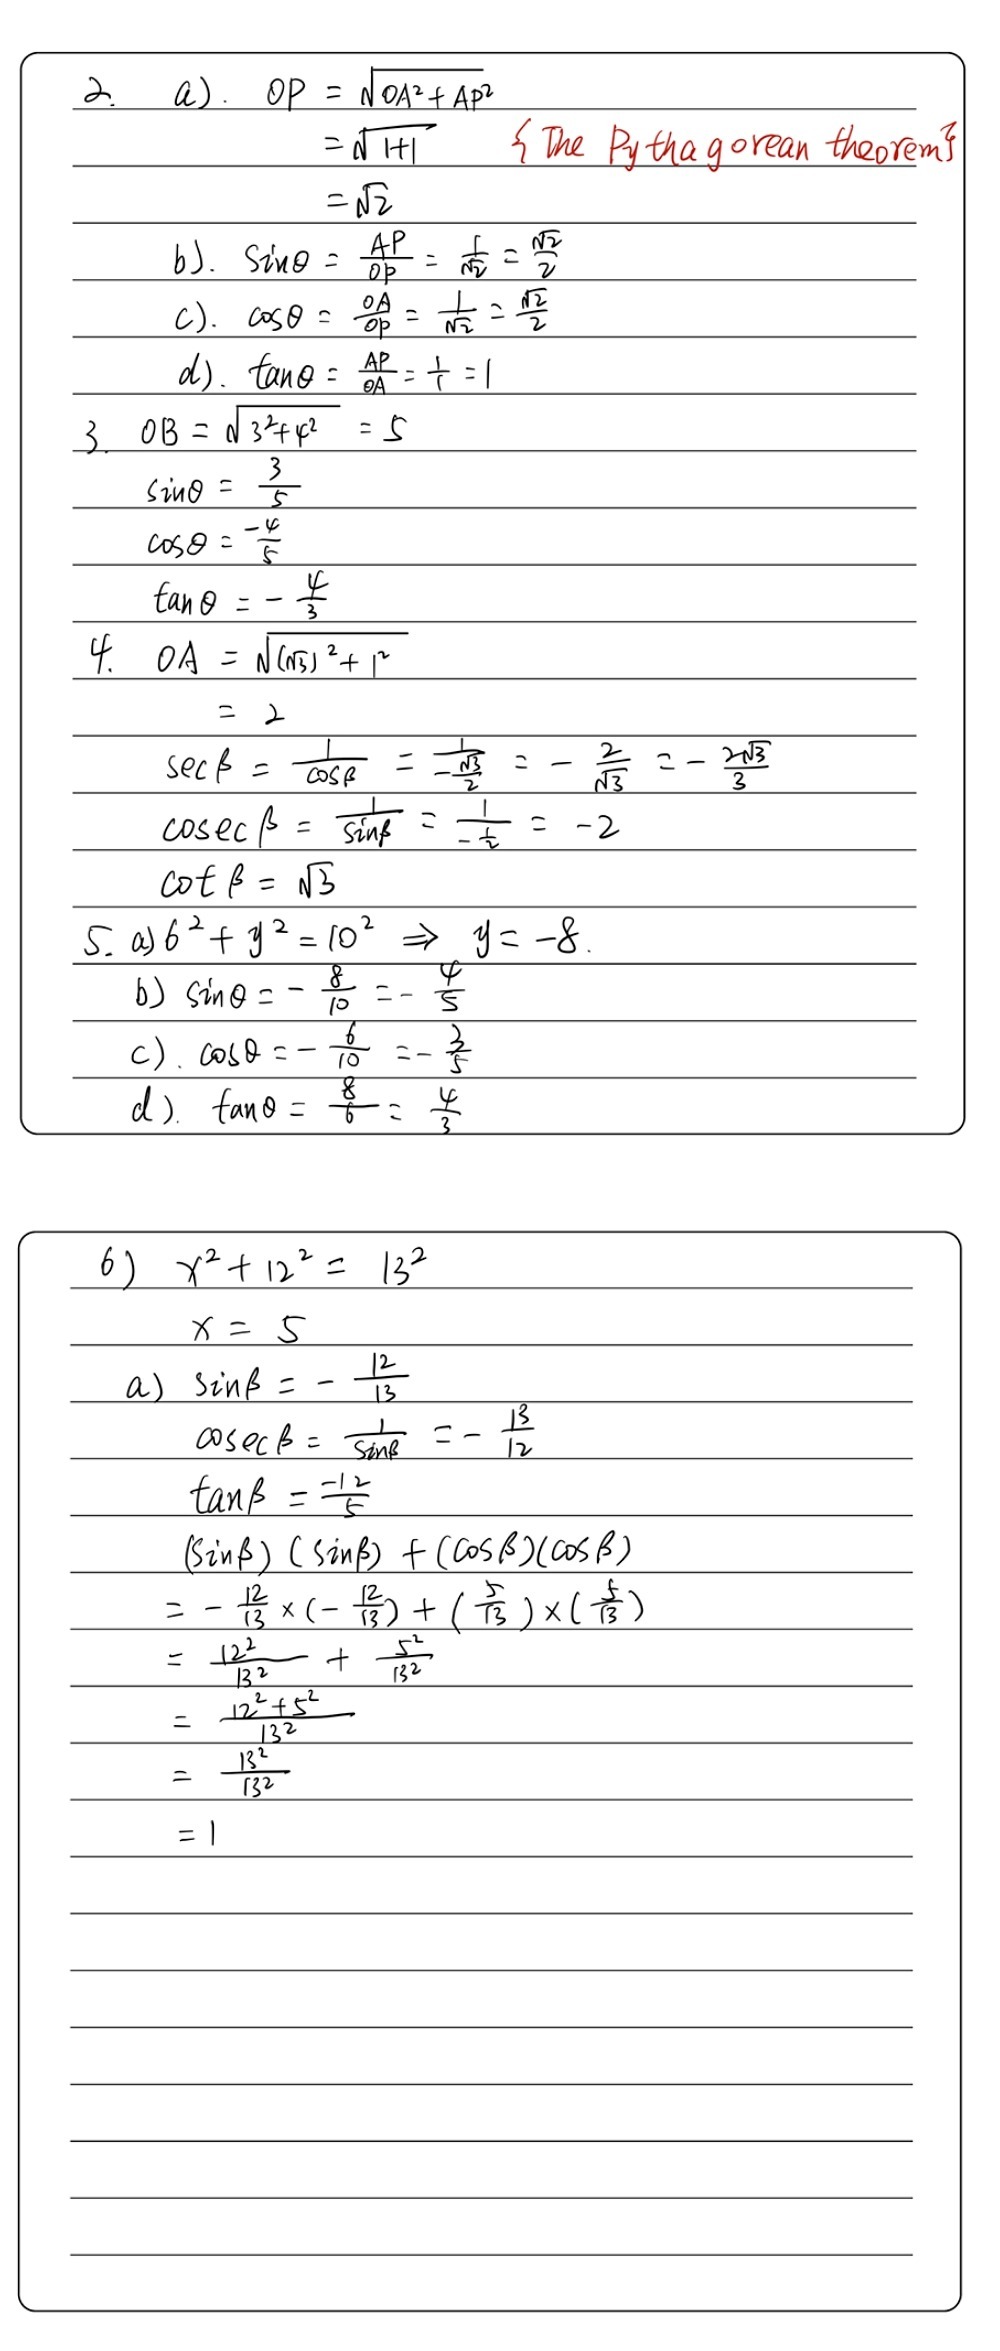 2. a). OP = √(OA²+AP²)
= √(1+1) {The Pythagorean theorem}
= √2
b). sinθ = AP/OP = 1/√2 = √2/2
c). cosθ = OA/OP = 1/√2 = √2/2
d). tanθ = AP/OA = 1/1 = 1
3. OB = √(3²+4²) = 5
sinθ = 3/5
cosθ = -4/5
tanθ = - 4/3
4. OA = √((√3)²+1²)
= 2
secβ = 1/cosβ = 1/(-√3/2) = - 2/√3 = - 2√3/3
cosecβ = 1/sinβ = 1/(-1/2) = -2
cotβ = √3
5. a) 6²+y²=10² ⇒ y = -8.
b) sinθ = - 8/10 = - 4/5
c). cosθ = - 6/10 = - 3/5
d). tanθ = 8/6 = 4/3
6) x²+12² = 13²
x = 5
a) sinβ = - 12/13
cosecβ = 1/sinβ = - 13/12
tanβ = -12/5
(sinβ)(sinβ) + (cosβ)(cosβ)
= - 12/13 × (- 12/13) + (5/13) × (5/13)
= 12²/13² + 5²/13²
= (12²+5²)/13²
= 13²/13²
= 1